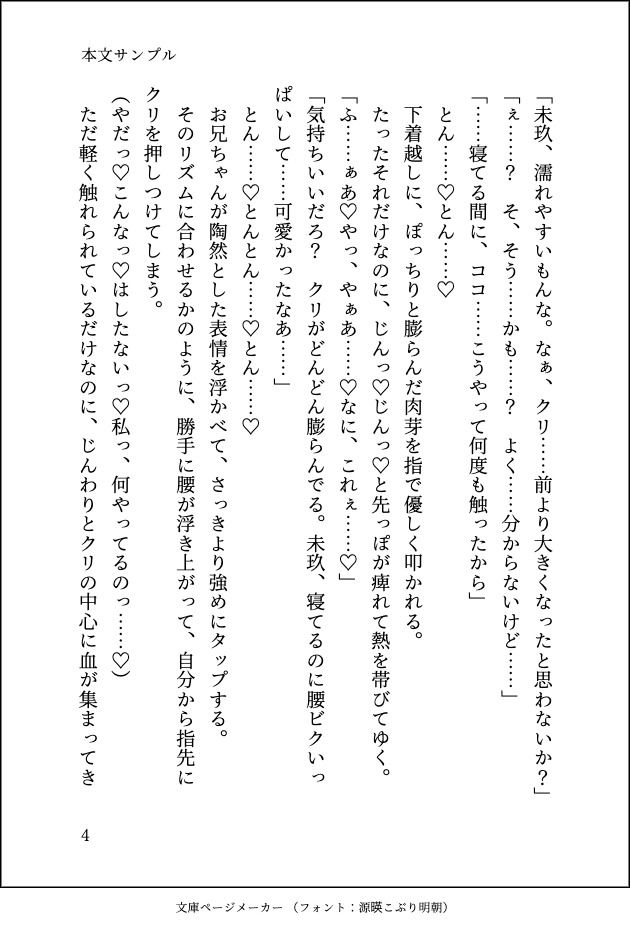 本文サンプル
「未玖、濡れやすいもんな。なぁ、クリ……前より大きくなったと思わないか？」
「ぇ……？　そ、そう……かも……？　よく……分からないけど……」
「……寝てる間に、ココ……こうやって何度も触ったから」
とん……♡とん……♡
下着越しに、ぽっちりと膨らんだ肉芽を指で優しく叩かれる。
たったそれだけなのに、じんっ♡じんっ♡と先っぽが痺れて熱を帯びてゆく。
「ふ……ぁあ♡やっ、やぁあ……♡なに、これぇ……♡」
「気持ちいいだろ？　クリがどんどん膨らんでる。未玖、寝てるのに腰ビクいっ
ぱいして……可愛かったなあ……」
とん……♡とんとん……♡とん……♡
お兄ちゃんが陶然とした表情を浮かべて、さっきより強めにタップする。
そのリズムに合わせるかのように、勝手に腰が浮き上がって、自分から指先に
クリを押しつけてしまう。
（やだっ♡こんなっ♡はしたないっ♡私っ、何やってるのっ……♡）
ただ軽く触れられているだけなのに、じんわりとクリの中心に血が集まってき
4
文庫ページメーカー（フォント：源暎こぶり明朝）